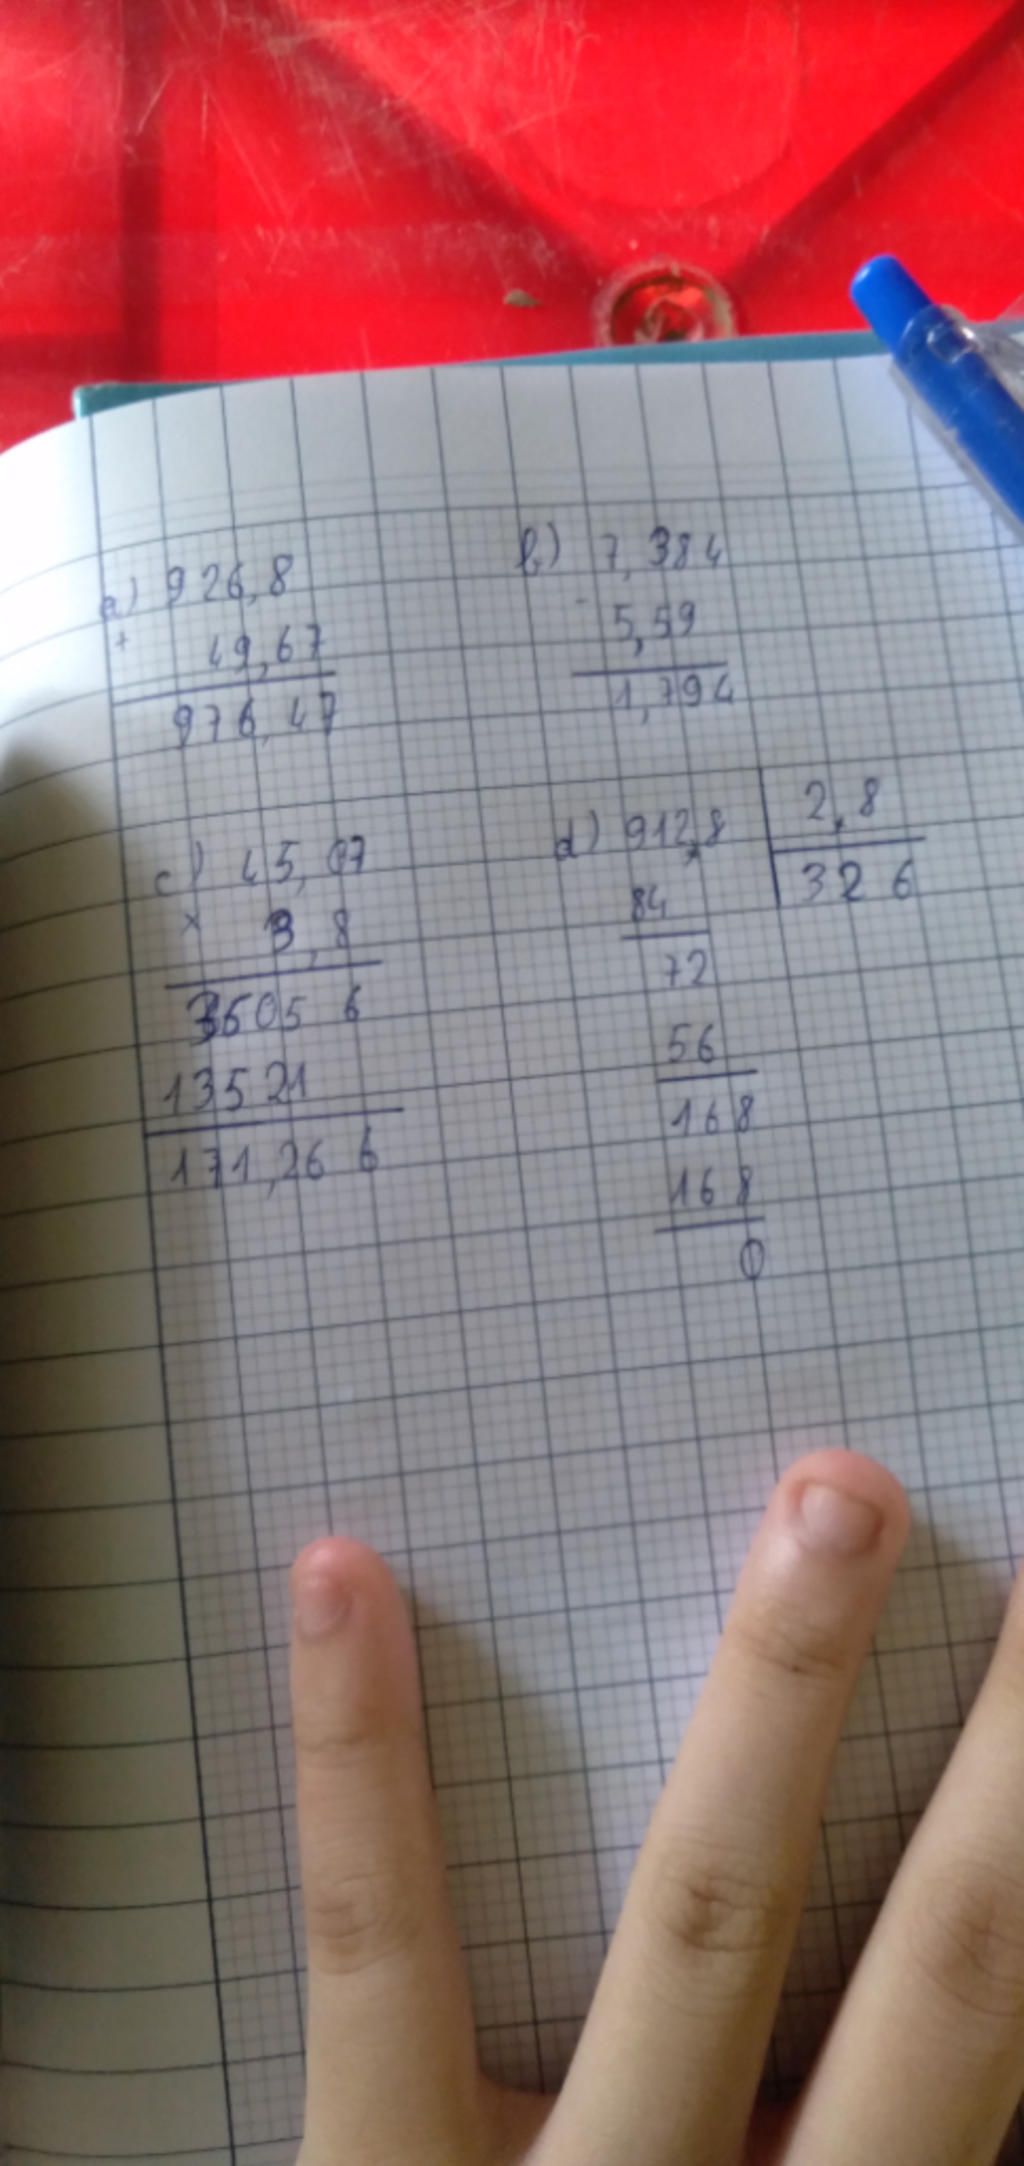 a) 926,8
+ 49,67
976,47
b) 7,384
- 5,59
1,794
c) 45,07
× 3,8
36056
13521
171,266
d) 912,8 2,8
84 326
72
56
168
168
0